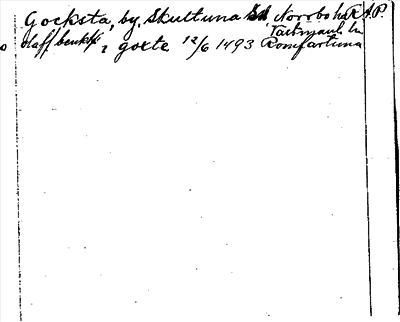 Gocksta, by, Skultuna sn, Norrbo hd R.A.P.
Västmanl. län
olaff benktss i gocte 12/6 1493 Romfartuna